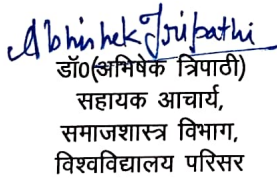 Abhishek Tripathi
डॉ0(अभिषेक त्रिपाठी)
सहायक आचार्य,
समाजशास्त्र विभाग,
विश्वविद्यालय परिसर